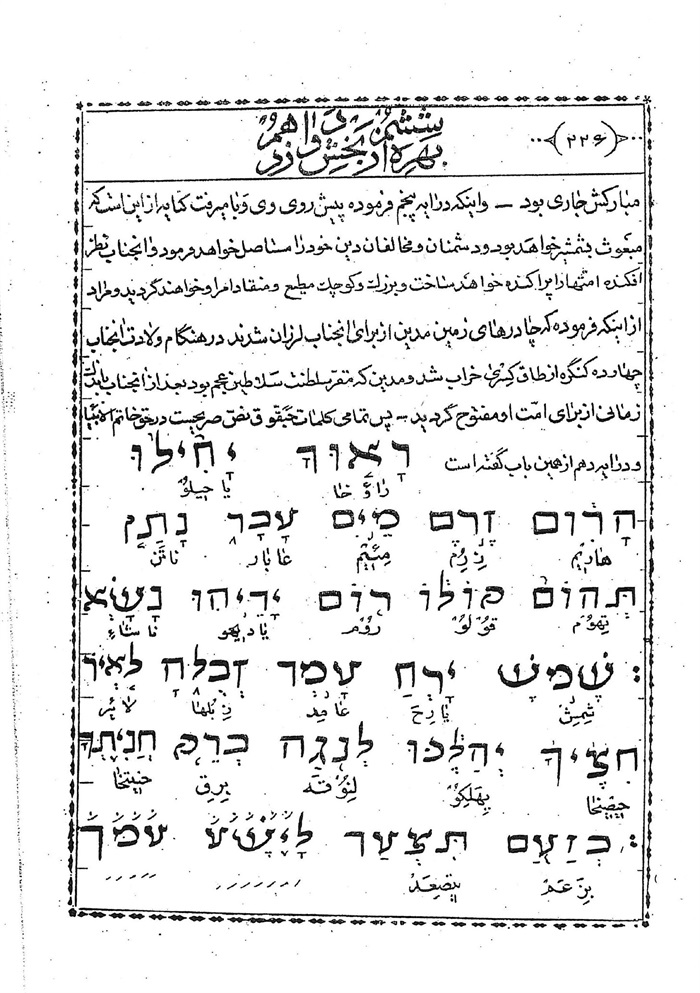 (۲۲۶) ششمین بهره از بخش دوازدهم
مبارکش جاری بود — و اینکه در آیه پنجم فرموده پیش روی وی وبا میرفت کنایه از این است که
مبعوث بشمشیر خواهد بود و دشمنان و مخالفان دین خود را مستاصل خواهد فرمود و انجناب نظر
افکنده امتها را پراکنده خواهند ساخت و بزرك و کوچك مطیع و منقاد امر او خواهند گردید و مراد
از اینکه فرموده که چادرهای زمین مدین از برای انجناب لرزان شدند در هنگام ولادت انجناب
چهارده کنگره از طاق کسری خراب شد و مدین که مقر سلطنت سلاطین عجم بود بعد از انجناب باندك
زمانی از برای امت او مفتوح گردید — پس تمامی کلمات حبقوق نص صریحست در حق خاتم الانبیا
و در آیه دهم از همین باب گفته است רָאוּךָ יָחִילוּ
راؤخا یاحیلو
הָרִום זֶרֶם מַיִם עָבָר נָתַם
هاریم زرم مئیم عابار ناتن
תְּהוֹם קוֹלוֹ רוֹם יָדֵיהוּ נָשָׂא
تهوم قولو روم یادیهو ناشاء
שֶׁמֶשׁ יָרֵחַ עָמַד זְבֻלָה לְאֹיר :
شمش یارح عامد زبلها لائر
חִצֶּיךָ יְהַלֵּכוּ לְנֹגַה בְּרַק חֲנִיתֶךָ
حیصخا یهلکو لنوقه برق حنیتخا
: בְּזַעַם תִּצְעַד לְיֵשַׁע עַמֶּךָ
بزعم تیصعد